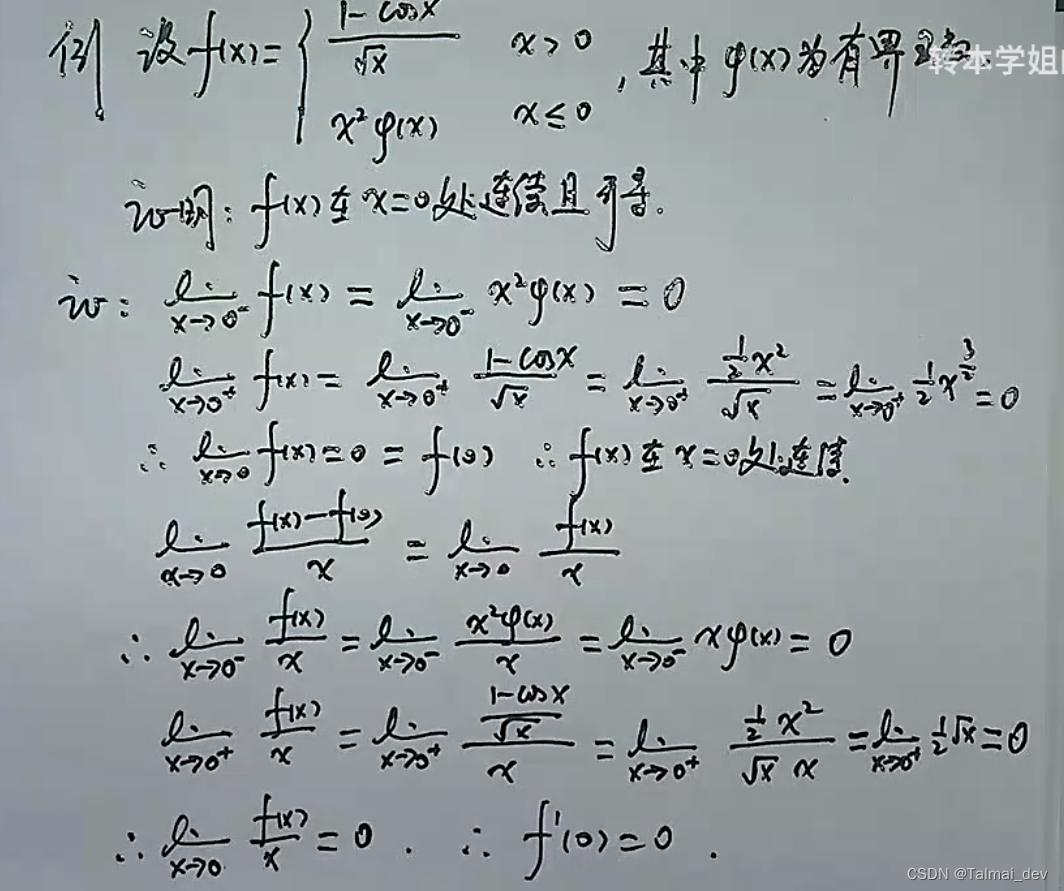 例 设 f(x) = { (1-cosx)/√x x>0 , 其中 φ(x)为有界
x²φ(x) x≤0
转本学姐
证明: f(x)在x=0处连续且可导。
证: lim_{x→0⁻} f(x) = lim_{x→0⁻} x²φ(x) = 0
lim_{x→0⁺} f(x) = lim_{x→0⁺} (1-cosx)/√x = lim_{x→0⁺} (½x²)/√x = lim_{x→0⁺} ½x^{3/2} = 0
∴ lim_{x→0} f(x) = 0 = f(0) ∴ f(x)在x=0处连续.
lim_{x→0} (f(x)-f(0))/x = lim_{x→0} f(x)/x
∴ lim_{x→0⁻} f(x)/x = lim_{x→0⁻} x²φ(x)/x = lim_{x→0⁻} xφ(x) = 0
lim_{x→0⁺} f(x)/x = lim_{x→0⁺} ((1-cosx)/√x)/x = lim_{x→0⁺} (½x²)/(√x x) = lim_{x→0⁺} ½√x = 0
∴ lim_{x→0} f(x)/x = 0 . ∴ f'(0) = 0 .
CSDN @Talmai_dev